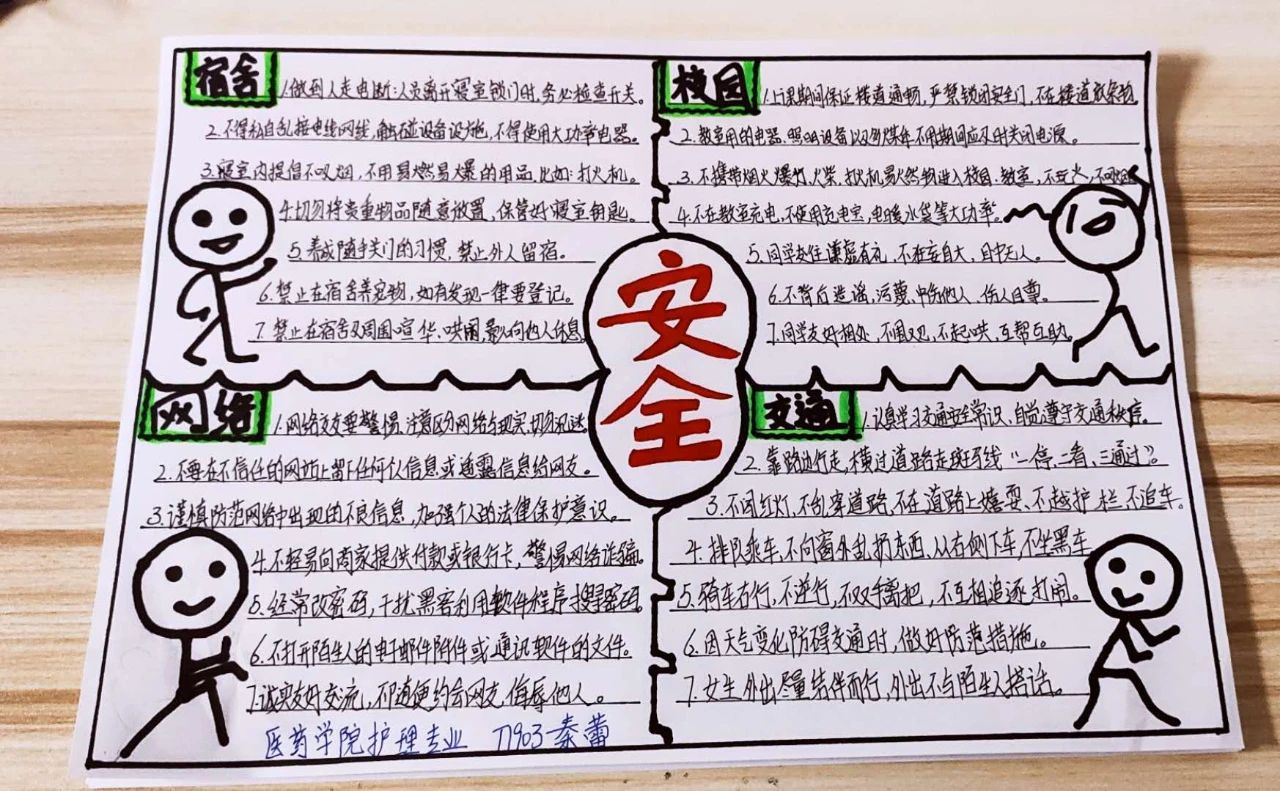 宿舍
1.做到人走电断:人员离开寝室锁门时,务必检查开关。
2.不得私自乱接电线网线,触碰设备设施,不得使用大功率电器。
3.寝室内提倡不吸烟,不用易燃易爆的用品,比如:打火机。
4.切勿将贵重物品随意放置,保管好寝室钥匙。
5.养成随手关门的习惯,禁止外人留宿。
6.禁止在宿舍养宠物,如有发现一律要登记。
7.禁止在宿舍及周围喧华、哄闹,影响他人休息
校园
1.上课期间保证楼道通畅,严禁锁闭安全门,不在楼道放杂物
2.教室用的电器、照明设备以及外煤年不用期间应及时关闭电源。
3.不携带烟火爆竹,火柴,打火机易燃物进入校园、教室,不玩火,不吸烟
4.不在教室充电,不使用充电宝,电暖水袋等大功率。
5.同学交往谦虚有礼,不在妄自大,目中无人。
6.不背后造谣,污蔑,中伤他人,伤人自尊。
7.同学友好相处,不围观,不起哄,互帮互助。
安全
网络
1.网络交友要警惕,注意区分网络与现实,切勿沉迷
2.不要在不信任的网站上留下任何个人信息或透露信息给网友。
3.谨慎防范网络中出现的不良信息,加强个人的法律保护意识。
4.不轻易向商家提供付款或银行卡,警惕网络诈骗。
5.经常改密码,干扰黑客利用软件程序搜寻密码
6.不打开陌生人的电子邮件附件或通讯软件的文件。
7.诚实友好交流,不随便约会网友,侮辱他人。
医药学院护理专业 T1903 秦蕾
交通
1.认真学习交通安全常识,自觉遵守交通秩序。
2.靠路边行走,横过道路走斑马线“一停,二看,三通过”。
3.不闯红灯,不乱穿道路,不在道路上嬉耍、不越护栏,不追车。
4.排队乘车,不向窗外乱扔东西,从右侧下车,不坐黑车
5.骑车右行,不逆行,不双手离把,不互相追逐打闹。
6.因天气变化防碍交通时,做好防范措施。
7.女生外出尽量结伴而行,外出不与陌生人搭话。